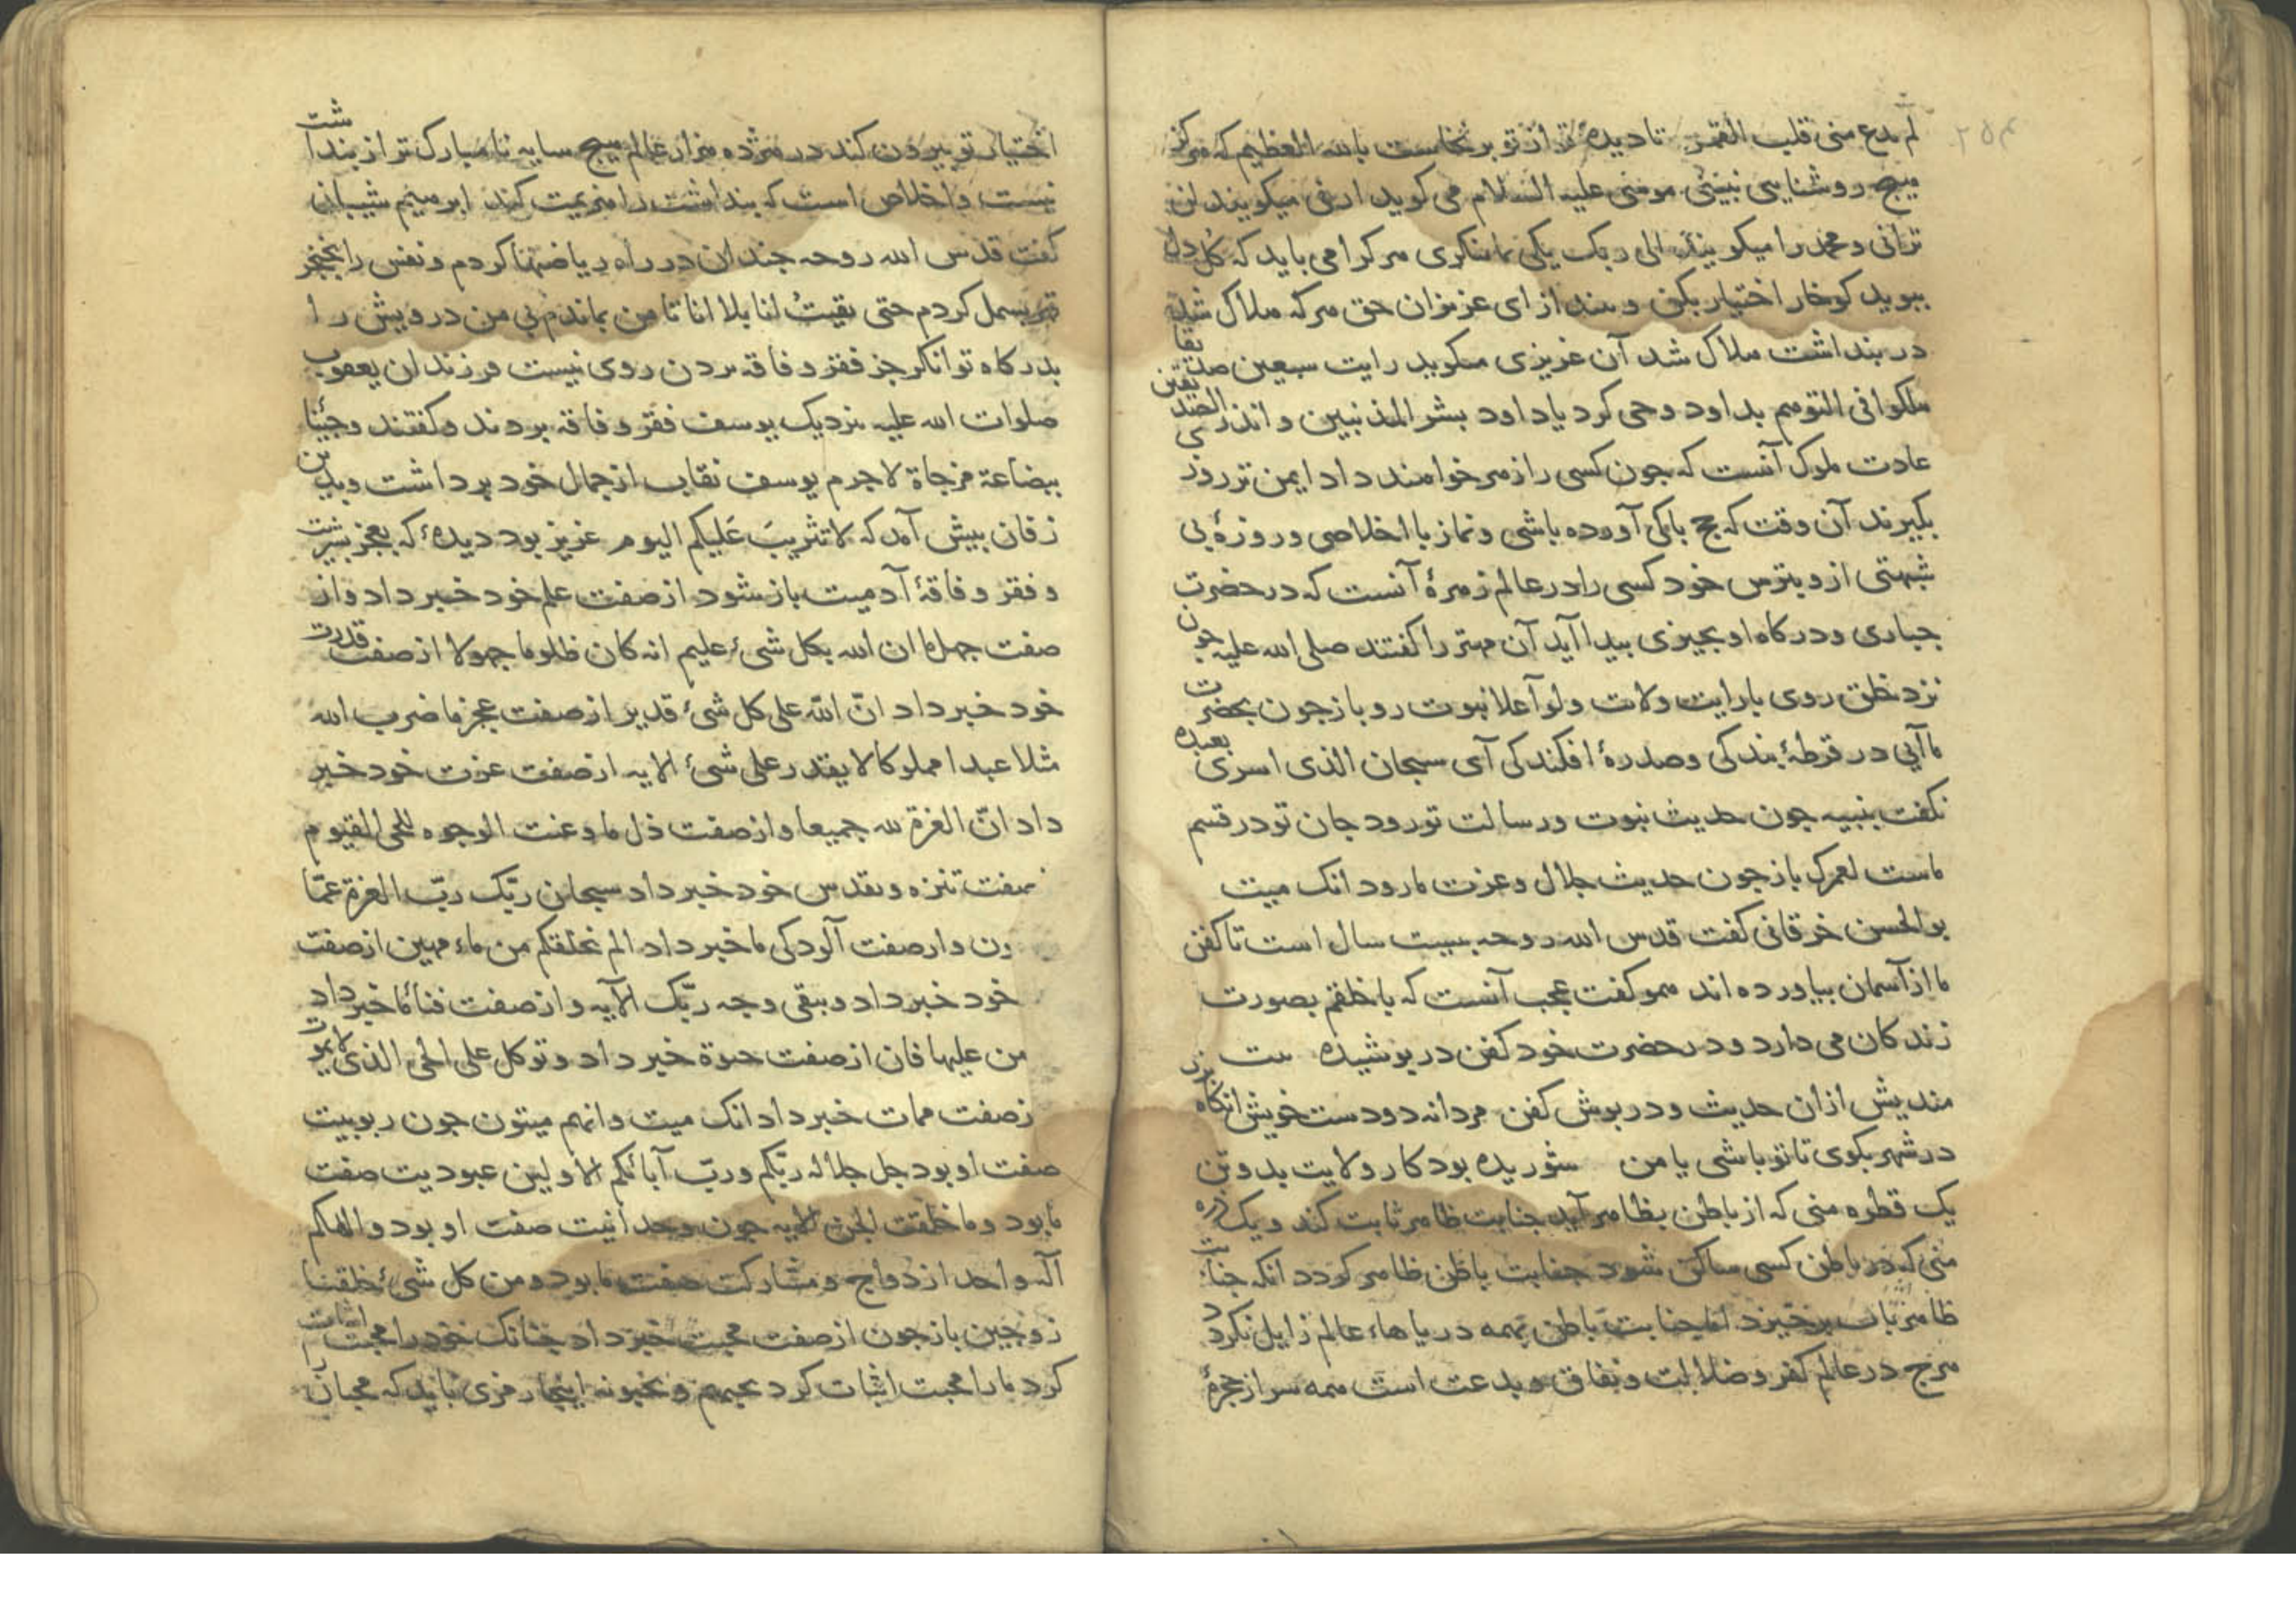 لم یدع منی قلب القمر تا دیدهٔ تو از تو بر نخاست بالله العظیم که هرگز
هیچ روشنایی نبینی موسی علیه السلام می کوید ارنی میکویند لن
ترانی و محمد را میکویند الی ربک یکی تا ننکری هر کرا می باید که کل دل
ببوید کو خار اختیار بکن و بینداز ای عزیزان حق هر که هلاک شد
در بنداشت هلاک شد آن عزیزی میکوید رایت سبعین صدیقا
هلکوا فی التوهم بداود وحی کرد یا داود بشر المذنبین و انذر الصدیقین
عادت ملوک آنست که جون کسی را زهر خواهند داد ایمن تر روزی
بکیرند آن وقت که حج باکی آورده باشی و نماز با اخلاصی و روزهٔ بی
شبهتی ازو بترس خود کسی را در عالم زهرهٔ آنست که در حضرت
جباری و درکاه او بجیزی بیدا آید آن مهتر را کفتند صلی الله علیه جون
نزد خلق روی با رایت ولایت و لوآ علا نبوت رو باز جون بحضرت
ما آیی در قرطهٔ بندکی و صدرهٔ افکندکی آی سبحان الذی اسری بعبده
نکفت بنبیه جون حدیث نبوت و رسالت تو رود جان تو در قسم
ماست لعمرک باز جون حدیث جلال و عزت ما رود انک میت
بو الحسن خرقانی کفت قدس الله روحه بیست سال است تا کفن
ما از آسمان بیاورده اند همو کفت عجب آنست که با خلقم بصورت
زندکان می دارد و در حضرت خود کفن در بوشیده بیت
مندیش ازان حدیث و در بوش کفن مردانه دو دست خویش آنکاه بزن
در شهر بکوی تا تو باشی یا من شوریده بود کار ولایت بدو تن
یک قطره منی که از باطن بظاهر آید جنابت ظاهر ثابت کند و یک ذره
منی که در باطن کسی ساکن شود جنابت باطن ظاهر کردد انکه جنابت
ظاهر بآب برخیزد اما جنابت باطن بهمه دریاهاء عالم زایل نکردد
هرج در عالم کفر و ضلالت و نفاق و بدعت است همه سر از حجرهٔ
اختیار تو بیرون کند در هژده هزار عالم هیچ سایه نامبارک تر از بنداشت
نیست و اخلاص است که بنداشت را هزیمت کند ابرهیم شیبانی
کفت قدس الله روحه جندان در راه ریاضتها کردم و نفس را بخنجر
قهر بسمل کردم حتی بقیت انا بلا انا تا من بماندم بی من درویش را
بدرکاه توانکر جز فقر و فاقه بردن روی نیست فرزندان یعقوب
صلوات الله علیه نزدیک یوسف فقر و فاقه بردند و کفتند و جئنا
ببضاعة مزجاة لاجرم یوسف نقاب از جمال خود برداشت و بدین
زفان بیش آمد که لا تثریب علیکم الیوم عزیز بود دیدهٔ که بعجز بشریت
و فقر و فاقهٔ آدمیت باز شود از صفت علم خود خبر داد و از
صفت جهل ما ان الله بکل شیء علیم انه کان ظلوما جهولا از صفت قدرت
خود خبر داد ان الله علی کل شیء قدیر از صفت عجز ما ضرب الله
مثلا عبدا مملوکا لا یقدر علی شیء الایه از صفت عزت خود خبر
داد ان العزة لله جمیعا و از صفت ذل ما و عنت الوجوه للحی القیوم
صفت تنزه و تقدس خود خبر داد سبحان ربک رب العزة عما
ون و از صفت آلودکی ما خبر داد الم نخلقکم من ماء مهین از صفت
خود خبر داد و یبقی وجه ربک الآیه و از صفت فنائ ما خبر داد
من علیها فان از صفت حیوة خبر داد و توکل علی الحی الذی لا یموت
زصفت ممات خبر داد انک میت و انهم میتون جون ربوبیت
صفت او بود جل جلاله ربکم و رب آبائکم الاولین عبودیت صفت
ما بود و ما خلقت الجن الایه جون وحدانیت صفت او بود و الهکم
اله واحد ازدواج و مشارکت صفت ما بود و من کل شیء خلقنا
زوجین باز جون از صفت محبت خبر داد جنانک خود را محبت اثبات
کرد ما را محبت اثبات کرد یحبهم و یحبونه اینجا رمزی باید که محبان